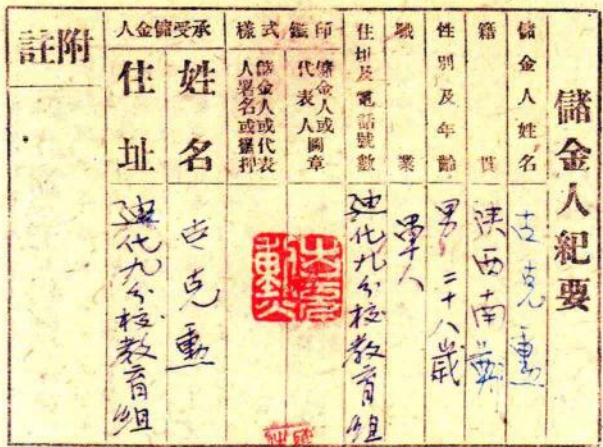 儲金人紀要
儲金人姓名 古克勳
籍貫 陝西南鄭
性別及年齡 男 二十八歲
職業 軍人
住址及電話號數 迪化九分校教育組
印鑑式樣
儲金人或
代表人圖章
儲金人或代表
人署名或押
承受儲金人
姓名 古克勳
住址 迪化九分校教育組
附註